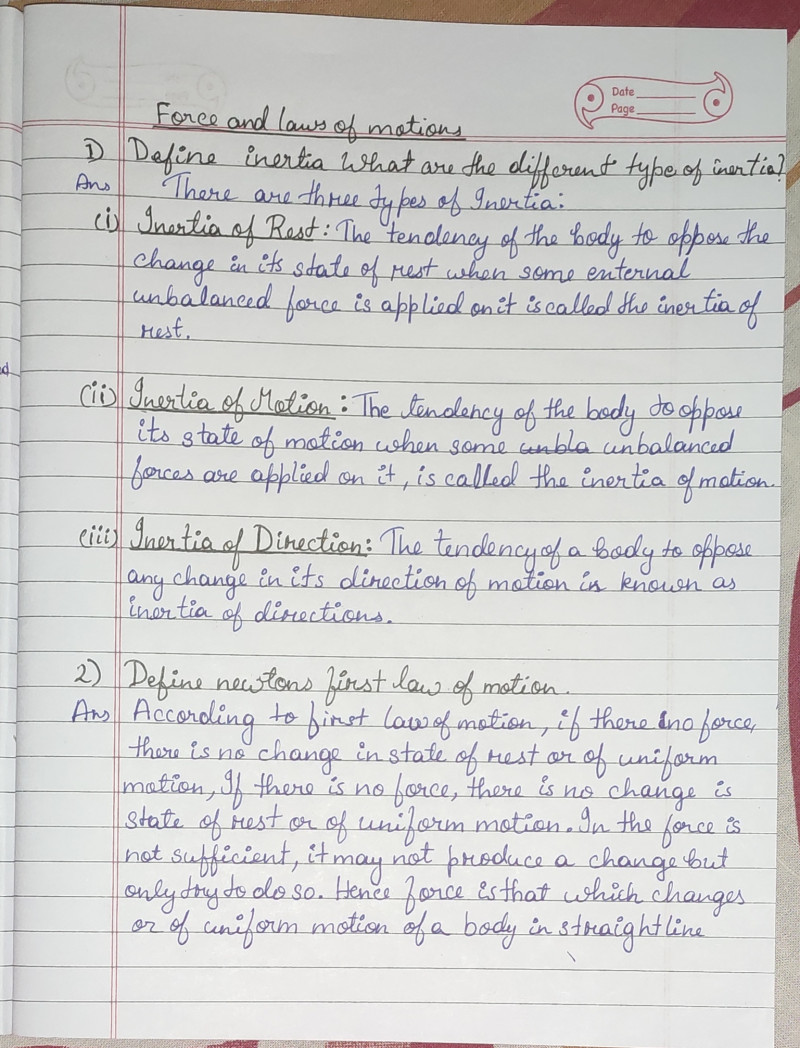 Date
Page
Force and laws of motions
1) Define inertia What are the different type of inertia?
Ans There are three types of Inertia:
(i) Inertia of Rest: The tendency of the body to oppose the
change in its state of rest when some enternal
unbalanced force is applied on it is called the inertia of
rest.
(ii) Inertia of Motion: The tendency of the body to oppose
its state of motion when some unbla unbalanced
forces are applied on it, is called the inertia of motion.
(iii) Inertia of Direction: The tendency of a body to oppose
any change in its direction of motion is known as
inertia of directions.
2) Define newtons first law of motion.
Ans According to first law of motion, if there is no force,
there is no change in state of rest or of uniform
motion, If there is no force, there is no change is
state of rest or of uniform motion. In the force is
not sufficient, it may not produce a change but
only try to do so. Hence force is that which changes
or of uniform motion of a body in straight line